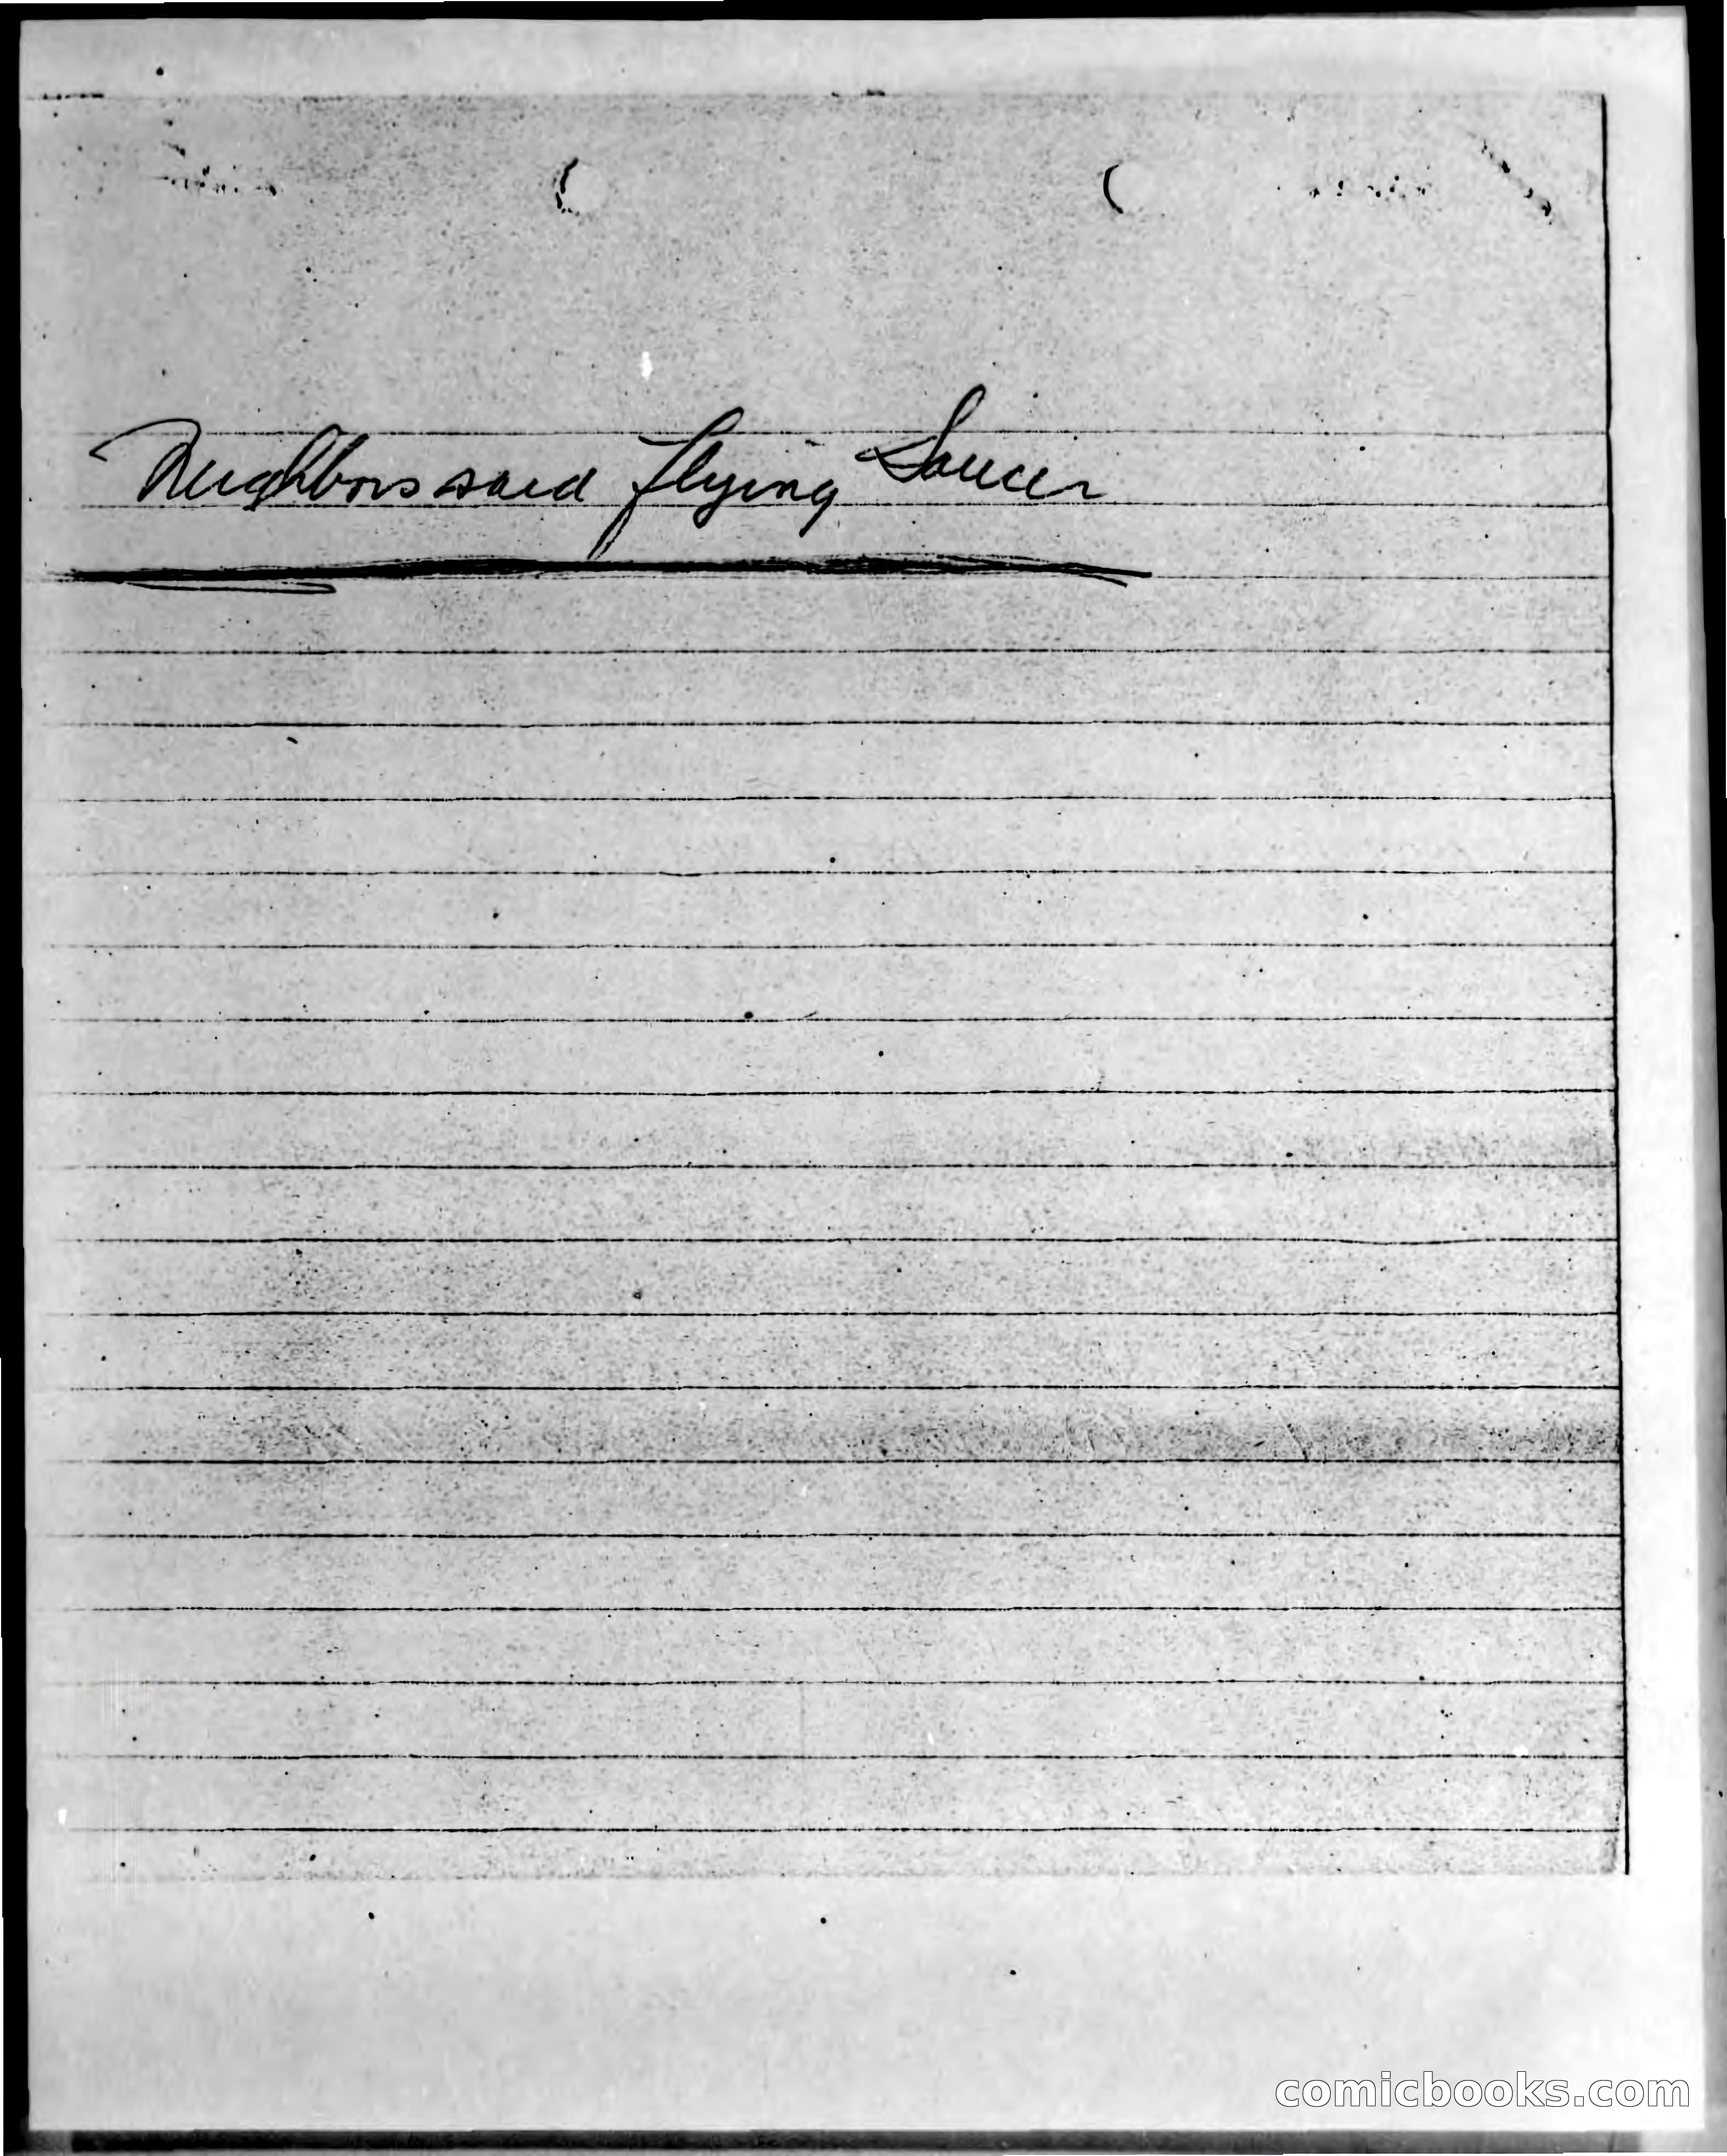 Neighbors said flying Saucer
comicbooks.com